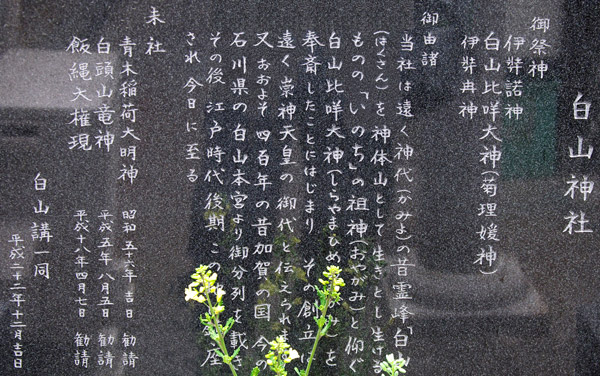 白山神社
御祭神
伊弉諾神
白山比咩大神(菊理媛神)
伊弉冉神
御由諸
当社は遠く神代(かみよ)の昔霊峰「白山
(はくさん)を神体山として生きとし生ける
ものの「いのち」の祖神(おやがみ)と仰ぐ
白山比咩大神(しらやまひめ
を
奉斎したことにはじまり その創立
遠く崇神天皇の御代と伝えられ
又おおよそ四百年の昔加賀の国 今の
石川県の白山本宮より御分列を載き
その後 江戸時代後期こ
座
され今日に至る
末社
青木稲荷大明神 昭和五十六年 吉日 勧請
白頭山竜神 平成五年八月五日 勧請
飯縄大権現 平成十八年四月七日 勧請
白山講一同
平成二十二年十二月吉日